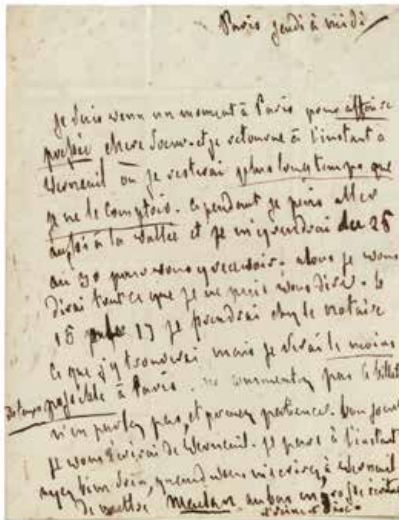 Paris jeudi à midi
je suis venu un moment à Paris pour affaire
pressée chere Soeur et je retourne à l'instant à
Verneuil où je resterai plus longtemps que
je ne le comptois. cependant je puis aller
à la vallée et je m'y rendrai du 28
au 30 pour vous y recevoir. alors je vous
dirai tout ce que je ne puis vous dire. le
15 17 je prendrai chez le notaire
ce que j'y trouverai mais je serai le moins
de temps possible à Paris. ne pas le billet
n'en parlez pas, et prenez patience. bon jour
je vous écrirai de Verneuil. je pars à l'instant
ayez bien soin, quand vous m'écrirez, à Verneuil
de mettre Meulan au bas